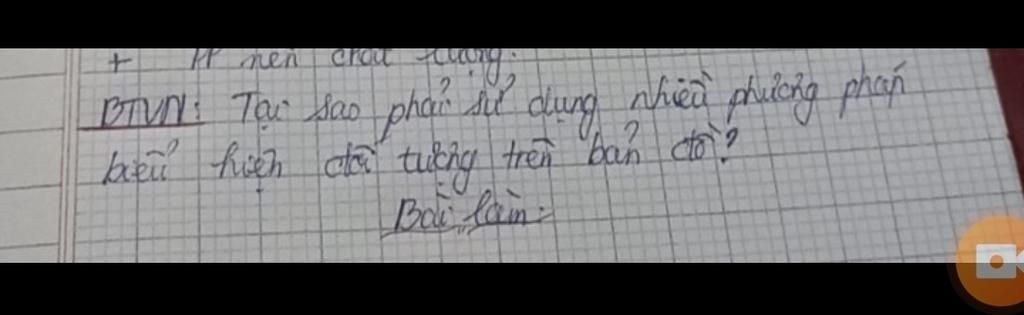 + PP nền chất lượng.
BTVN: Tại sao phải sử dụng nhiều phương pháp
biểu hiện đối tượng trên bản đồ?
Bài làm: